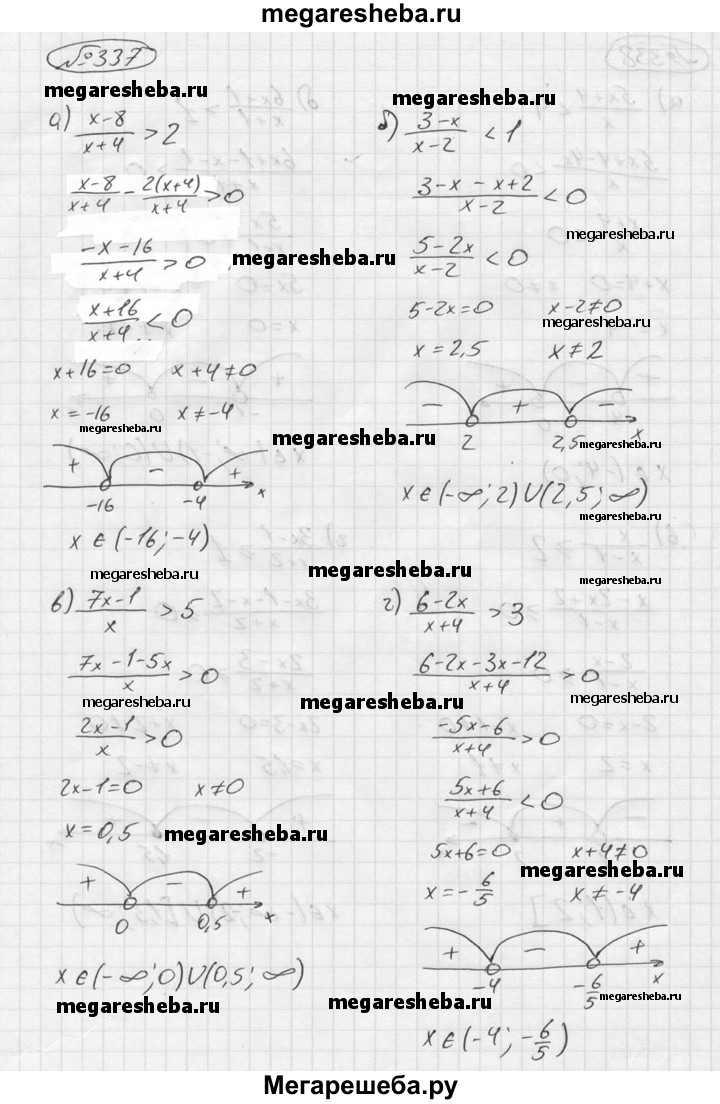 megaresheba.ru
№337
megaresheba.ru
а) (x-8)/(x+4) > 2
(x-8)/(x+4) - 2(x+4)/(x+4) > 0
(-x-16)/(x+4) > 0
megaresheba.ru
(x+16)/(x+4) < 0
x+16=0 x+4≠0
x=-16 x≠-4
megaresheba.ru
megaresheba.ru
+ - +
-16 -4 x
x ∈ (-16; -4)
megaresheba.ru
megaresheba.ru
б) (3-x)/(x-2) < 1
(3-x-x+2)/(x-2) < 0
megaresheba.ru
(5-2x)/(x-2) < 0
5-2x=0 x-2≠0
megaresheba.ru
x=2,5 x≠2
- + -
2 2,5 x
megaresheba.ru
x ∈ (-∞; 2) ∪ (2,5; ∞)
megaresheba.ru
megaresheba.ru
в) (7x-1)/x > 5
(7x-1-5x)/x > 0
megaresheba.ru
(2x-1)/x > 0
2x-1=0 x≠0
x=0,5
megaresheba.ru
+ - +
0 0,5 x
x ∈ (-∞; 0) ∪ (0,5; ∞)
megaresheba.ru
megaresheba.ru
г) (6-2x)/(x+4) > 3
(6-2x-3x-12)/(x+4) > 0
megaresheba.ru
megaresheba.ru
(-5x-6)/(x+4) > 0
(5x+6)/(x+4) < 0
5x+6=0 x+4≠0
megaresheba.ru
x=-6/5 x≠-4
+ - +
-4 -6/5 x
megaresheba.ru
megaresheba.ru
x ∈ (-4; -6/5)
Мегарешеба.ру